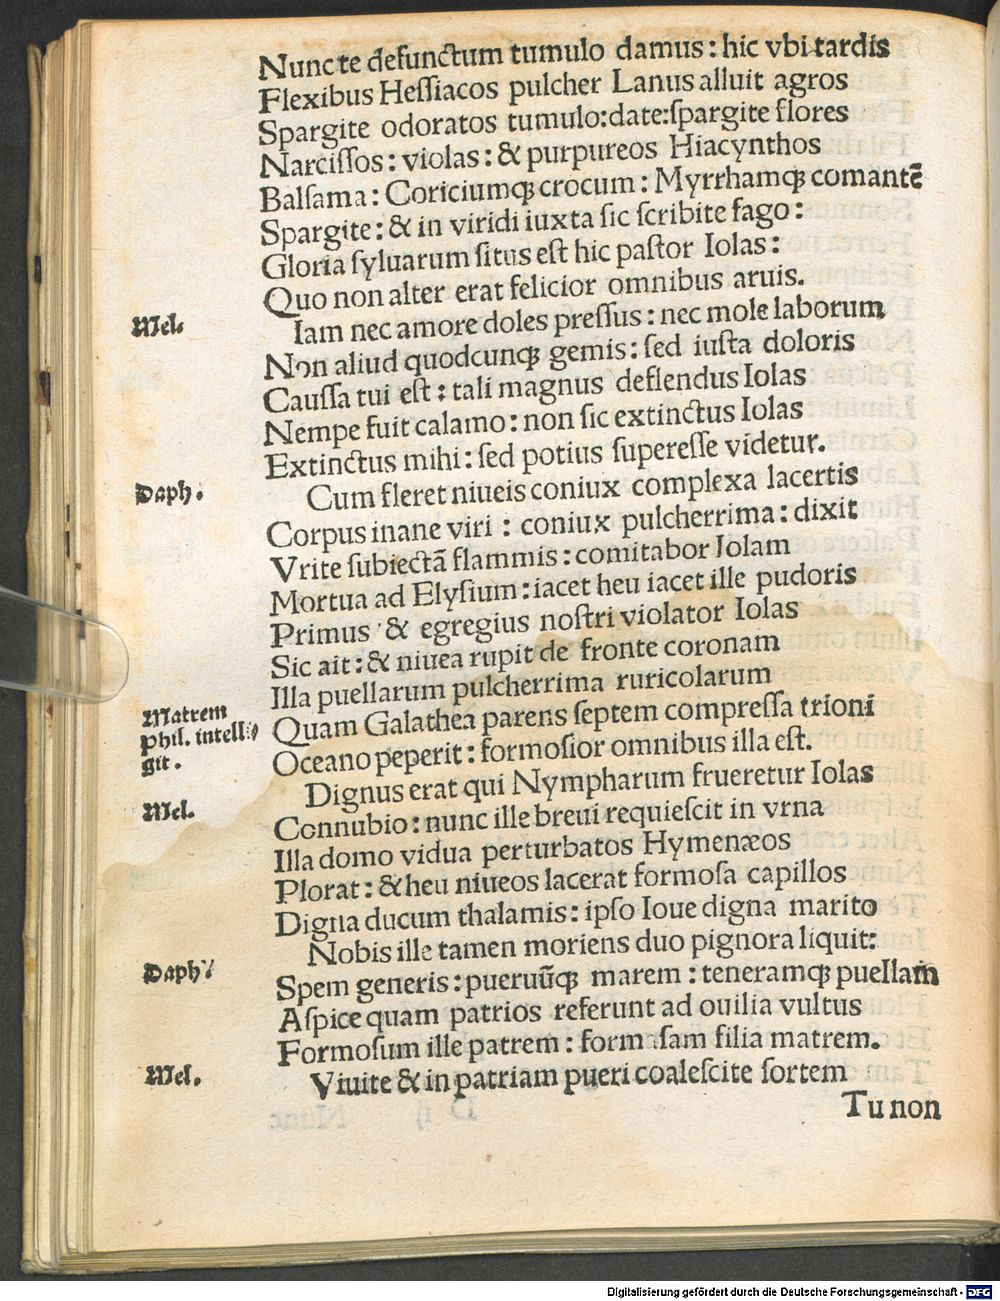 Nunc te defunctum tumulo damus : hic vbi tardis
Flexibus Heſſiacos pulcher Lanus alluit agros
Spargite odoratos tumulo:date:ſpargite flores
Narciſſos : violas : & purpureos Hiacynthos
Balſama : Coriciumqȝ crocum : Myrrhamqȝ comantē
Spargite : & in viridi iuxta ſic ſcribite fago :
Gloria ſyluarum ſitus eſt hic paſtor Iolas :
Quo non alter erat felicior omnibus aruis.
Mel. Iam nec amore doles preſſus : nec mole laborum
Non aliud quodcunqȝ gemis : ſed iuſta doloris
Cauſſa tui eſt : tali magnus deflendus Iolas
Nempe fuit calamo : non ſic extinctus Iolas
Extinctus mihi : ſed potius ſupereſſe videtur.
Daph. Cum fleret niueis coniux complexa lacertis
Corpus inane viri : coniux pulcherrima : dixit
Vrite ſubiectā flammis : comitabor Iolam
Mortua ad Elyſium : iacet heu iacet ille pudoris
Primus & egregius noſtri violator Iolas
Sic ait : & niuea rupit de fronte coronam
Illa puellarum pulcherrima ruricolarum
Matrem
phil. intelli
git.
Quam Galathea parens ſeptem compreſſa trioni
Oceano peperit : formoſior omnibus illa eſt.
Mel. Dignus erat qui Nympharum frueretur Iolas
Connubio : nunc ille breui requieſcit in vrna
Illa domo vidua perturbatos Hymenæos
Plorat : & heu niueos lacerat formoſa capillos
Digna ducum thalamis : ipſo Ioue digna marito
Daph. Nobis ille tamen moriens duo pignora liquit:
Spem generis : pueruūqȝ marem : teneramqȝ puellam
Aſpice quam patrios referunt ad ouilia vultus
Formoſum ille patrem : formoſam filia matrem.
Mel. Viuite & in patriam pueri coaleſcite ſortem
Tu non
Digitalisierung gefördert durch die Deutsche Forschungsgemeinschaft - DFG